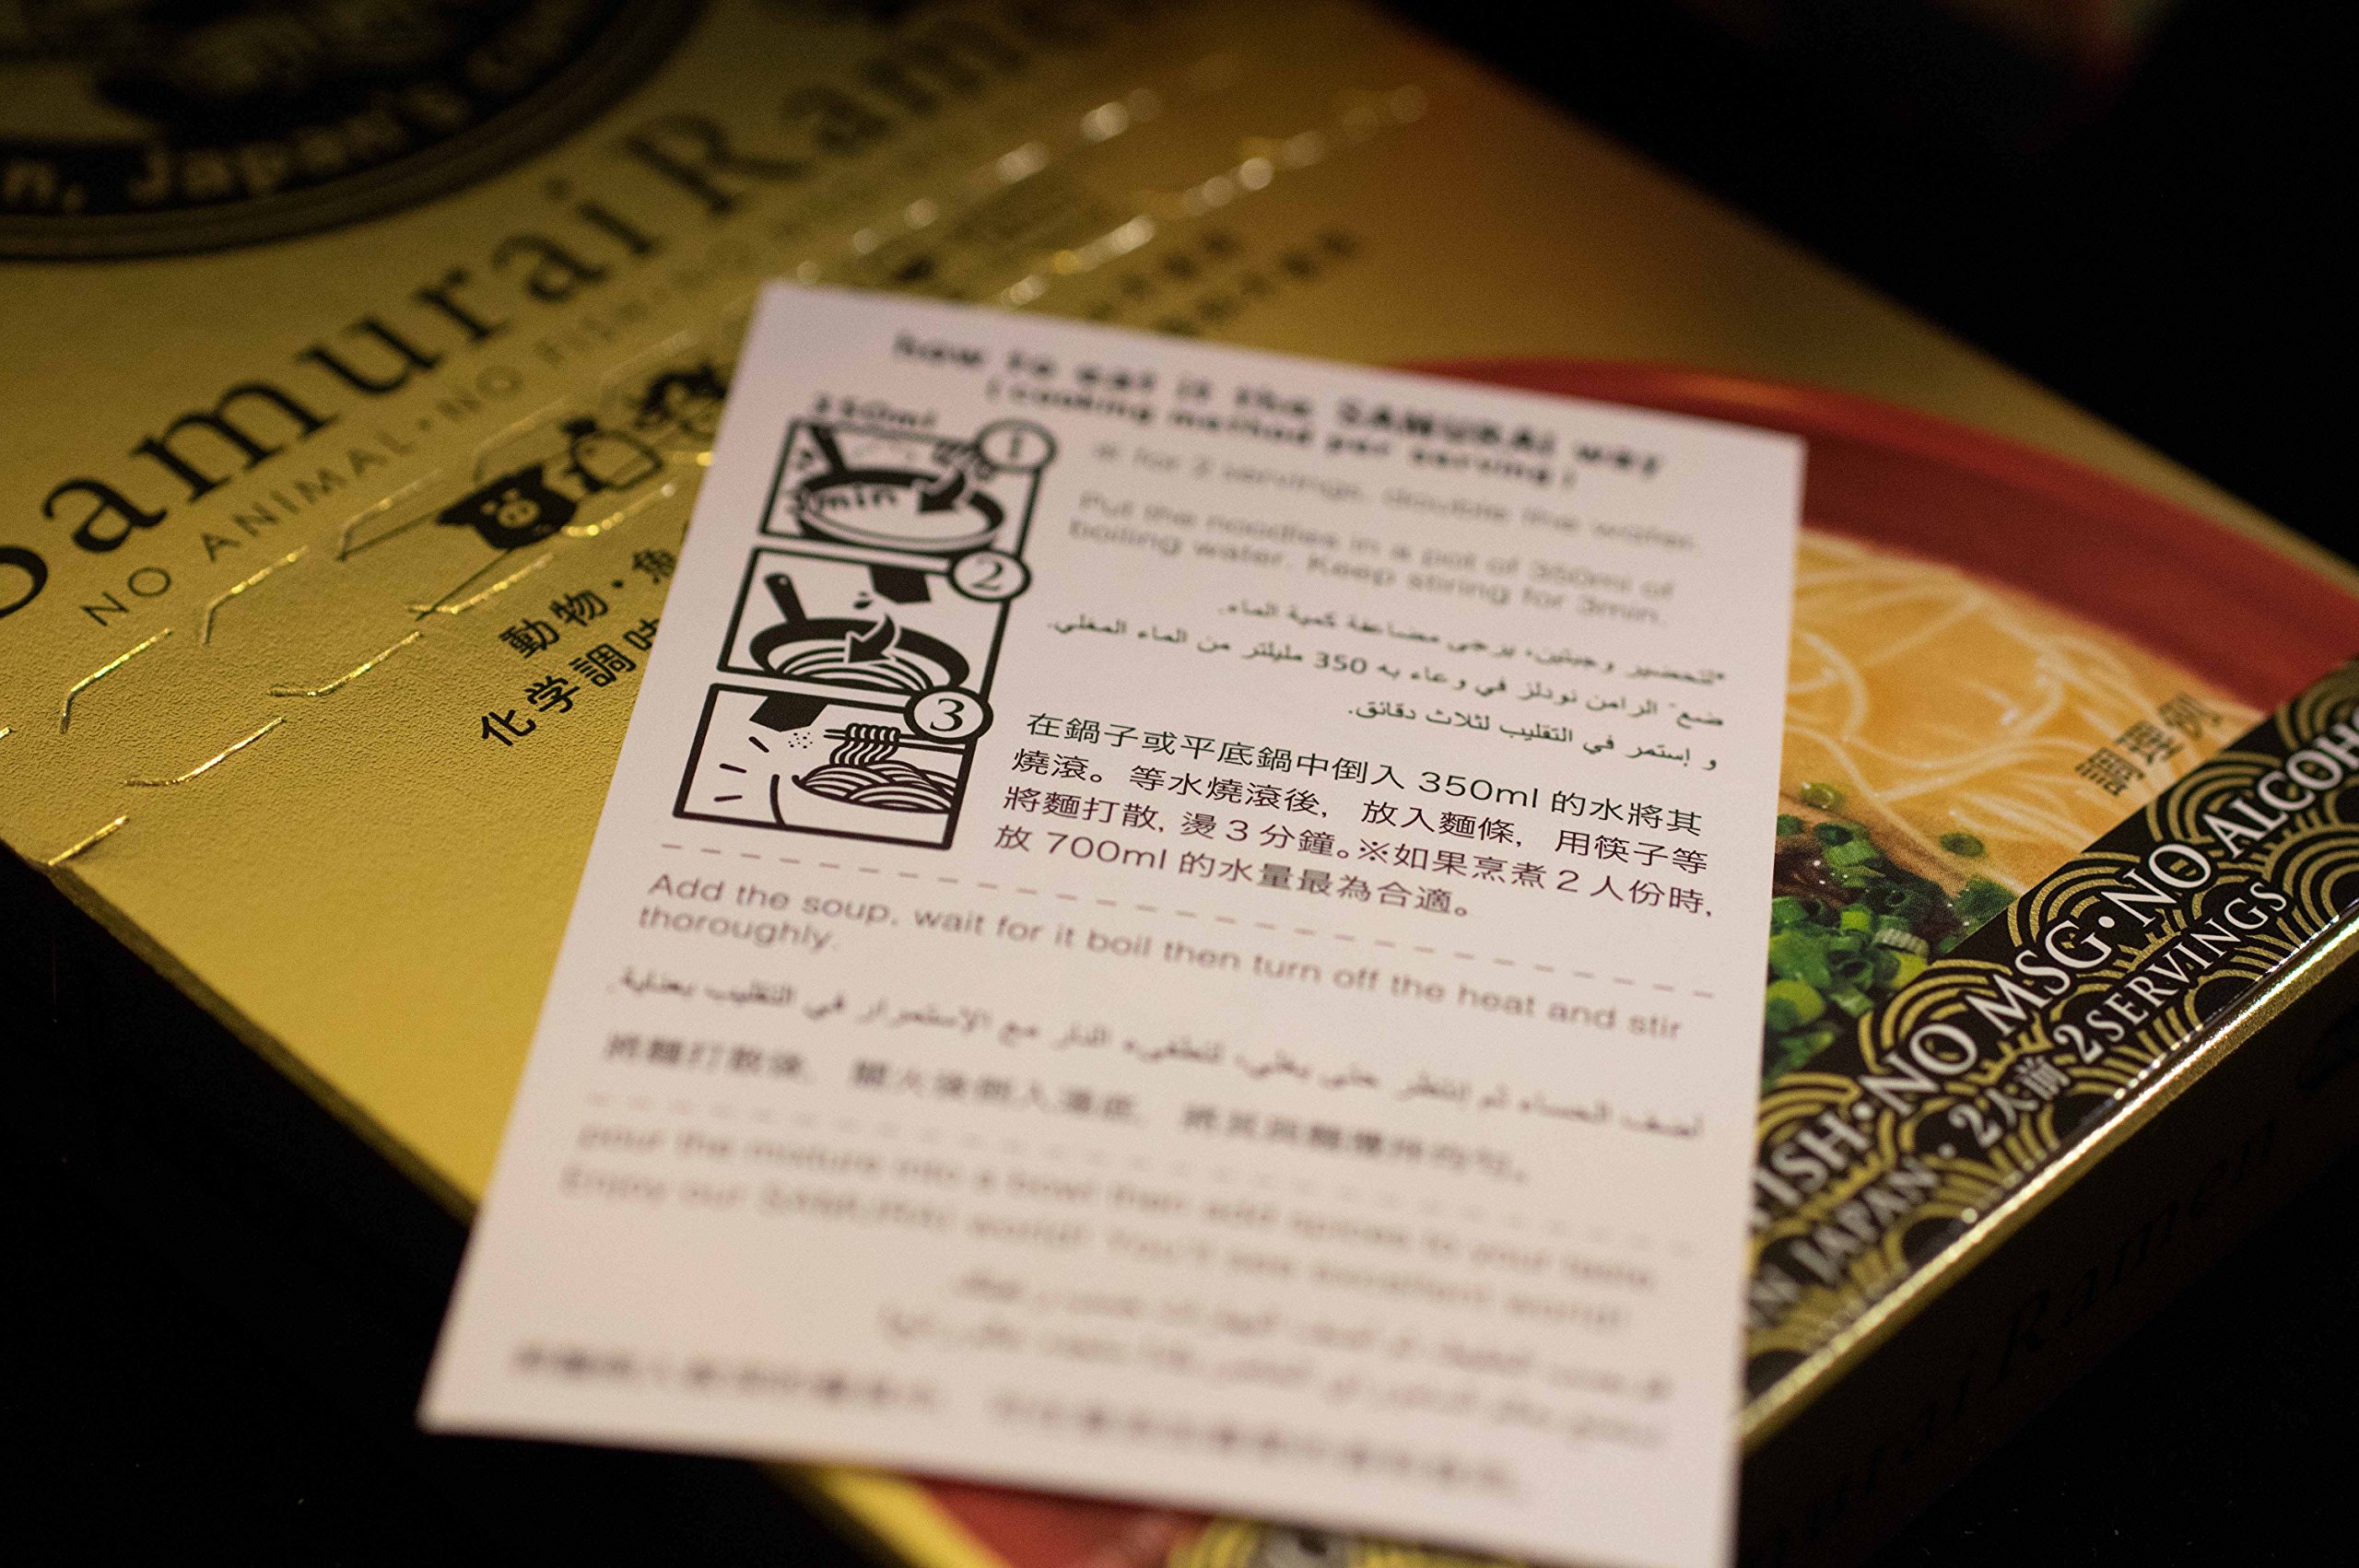 n, Japan's
Samurai Rame
NO ANIMAL・NO FISH・NO
動物・魚
化学調味
how to eat is the SAMURAI way
(cooking method per serving)
350ml
1
3min
2
3
※ for 2 servings, double the water.
Put the noodles in a pot of 350ml of
boiling water. Keep stiring for 3min.
*لتحضير وجبتين، يرجى مضاعفة كمية الماء.
ضع الرامن نودلز في وعاء به 350 مليلتر من الماء المغلي.
و إستمر في التقليب لثلاث دقائق.
在鍋子或平底鍋中倒入 350ml 的水將其
燒滾。等水燒滾後, 放入麵條, 用筷子等
將麵打散, 燙 3 分鐘。※如果烹煮 2 人份時,
放 700ml 的水量最為合適。
Add the soup, wait for it boil then turn off the heat and stir
thoroughly.
أضف الحساء ثم إنتظر حتى يغلي، لتطفىء النار مع الإستمرار في التقليب بعناية.
將麵打散後, 關火後倒入湯底, 將其與麵攪拌均勻。
pour the mixture into a bowl then add spices to your taste.
Enjoy our SAMURAI world! You'll see excellent world!
調理例
FISH・NO MSG・NO ALCOHO
IN JAPAN・2人前 2 SERVINGS